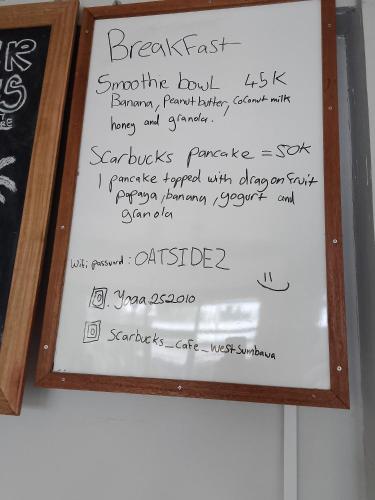 BreakFast
Smoothe bowl 45K
Banana, Peanut butter, coconut milk
honey and granola.
Scarbucks pancake = 50K
1 pancake topped with dragon fruit
papaya, banana, yogurt and
granola
Wifi password: OATSIDE2
Yogaa252010
Scarbucks_cafe_westsumbawa